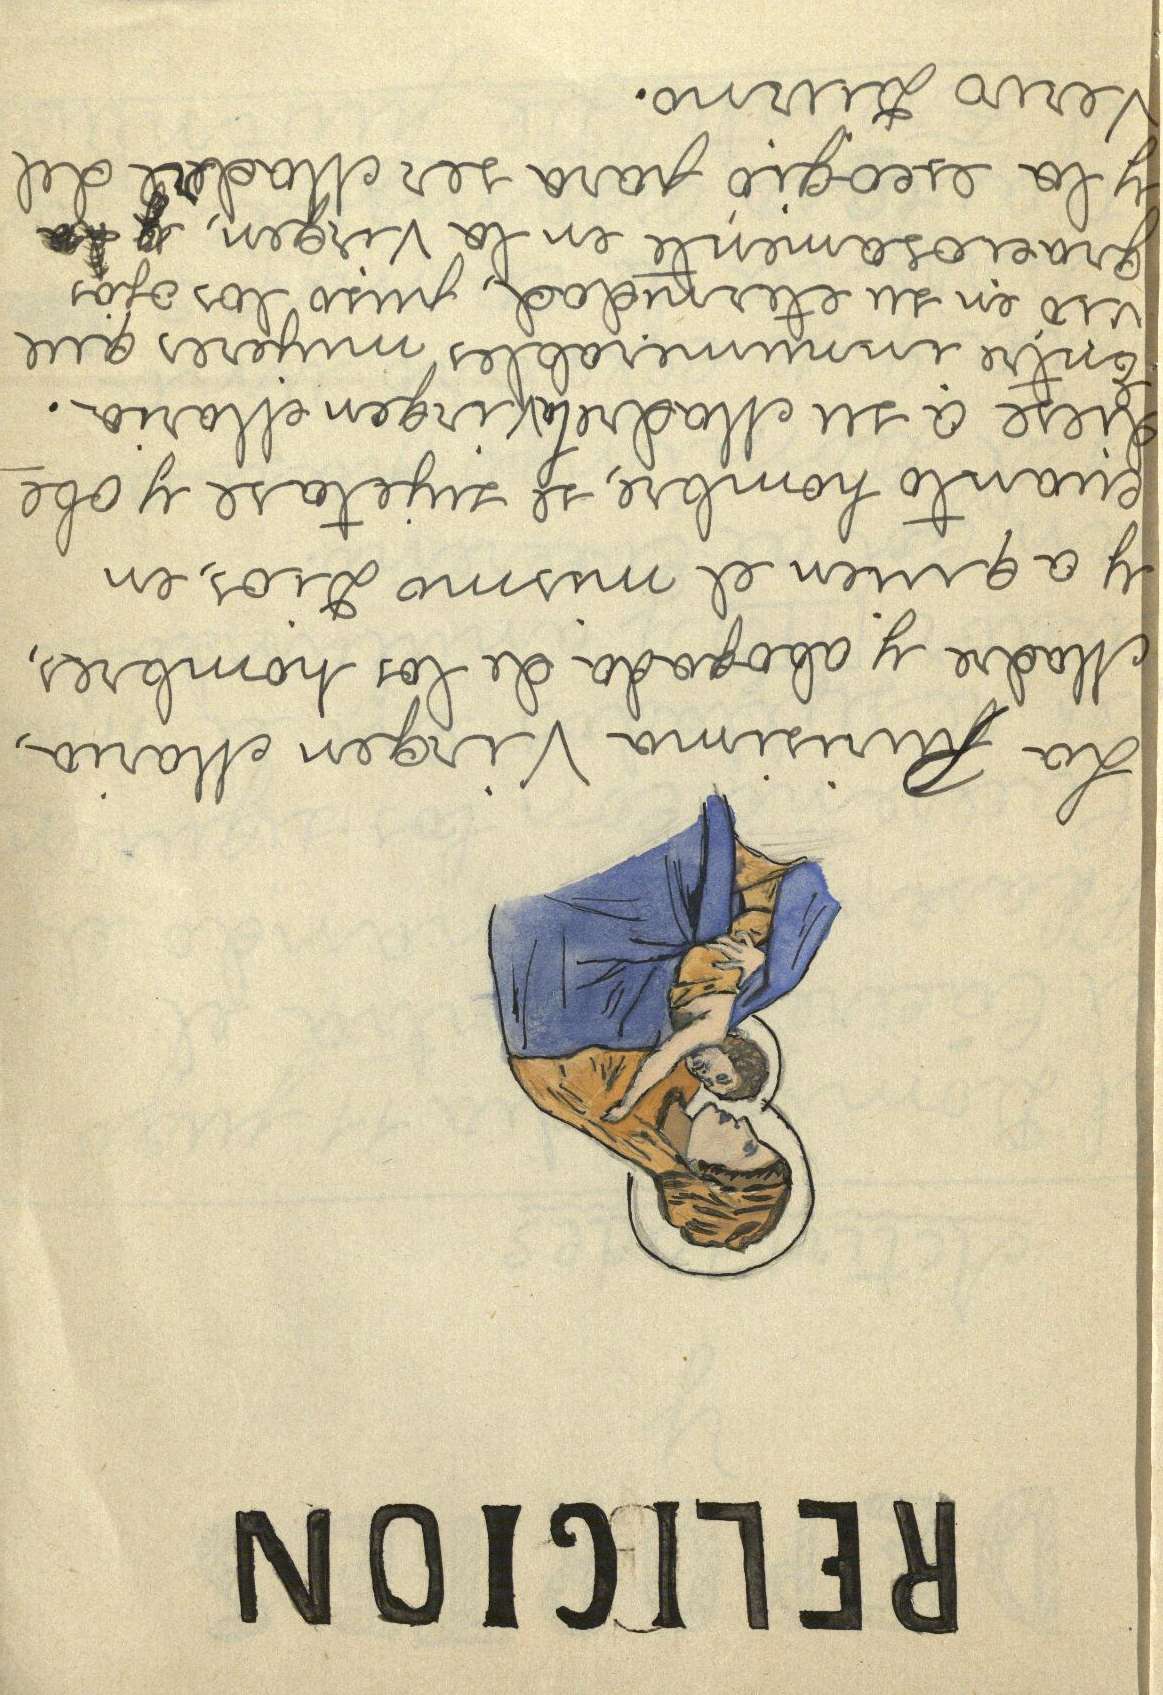 RELIGION
La Purisima Virgen Maria,
Madre y abogada de los hombres,
y a quien el mismo Dios, en
cuanto hombre, se sujetase y obe
diese a su Madre la Virgen Maria.
Entre innumerables mujeres que
vió en su eternidad, puso los ojos
graciosamente en la Virgen,
y la escogió para ser Madre del
Vervo Divino.